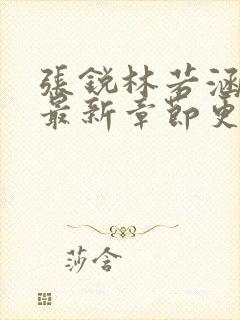 張銳林若涵
最新章節更
莎含